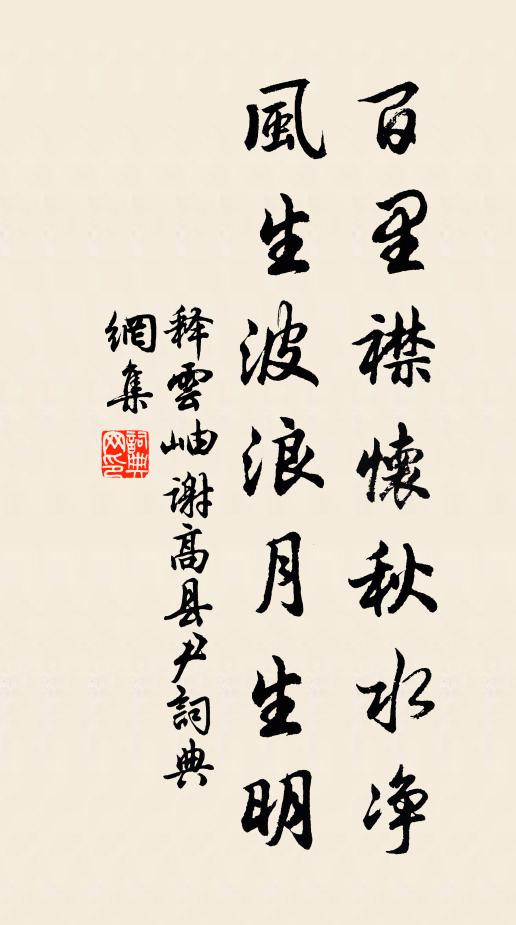 百里襟懷秋水净
風生波浪月生明
释雲岫谢高县尹詞典
網集
詞典
网印